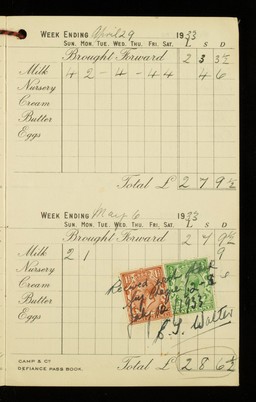 WEEK ENDING April 29 1933
SUN. MON. TUE. WED. THU. FRI. SAT. L S D
Brought Forward 2 3 3½
Milk 4 2 - 4 - 4 4 4 6
Nursery
Cream
Butter
Eggs
Total £ 2 7 9½
WEEK ENDING May 6 1933
SUN. MON. TUE. WED. THU. FRI. SAT. L S D
Brought Forward 2 7 9½
Milk 2 1 9
Nursery
Cream
Butter
Eggs
1933
Total £ 2 8 6½
CAMP & CT
DEFIANCE PASS BOOK.